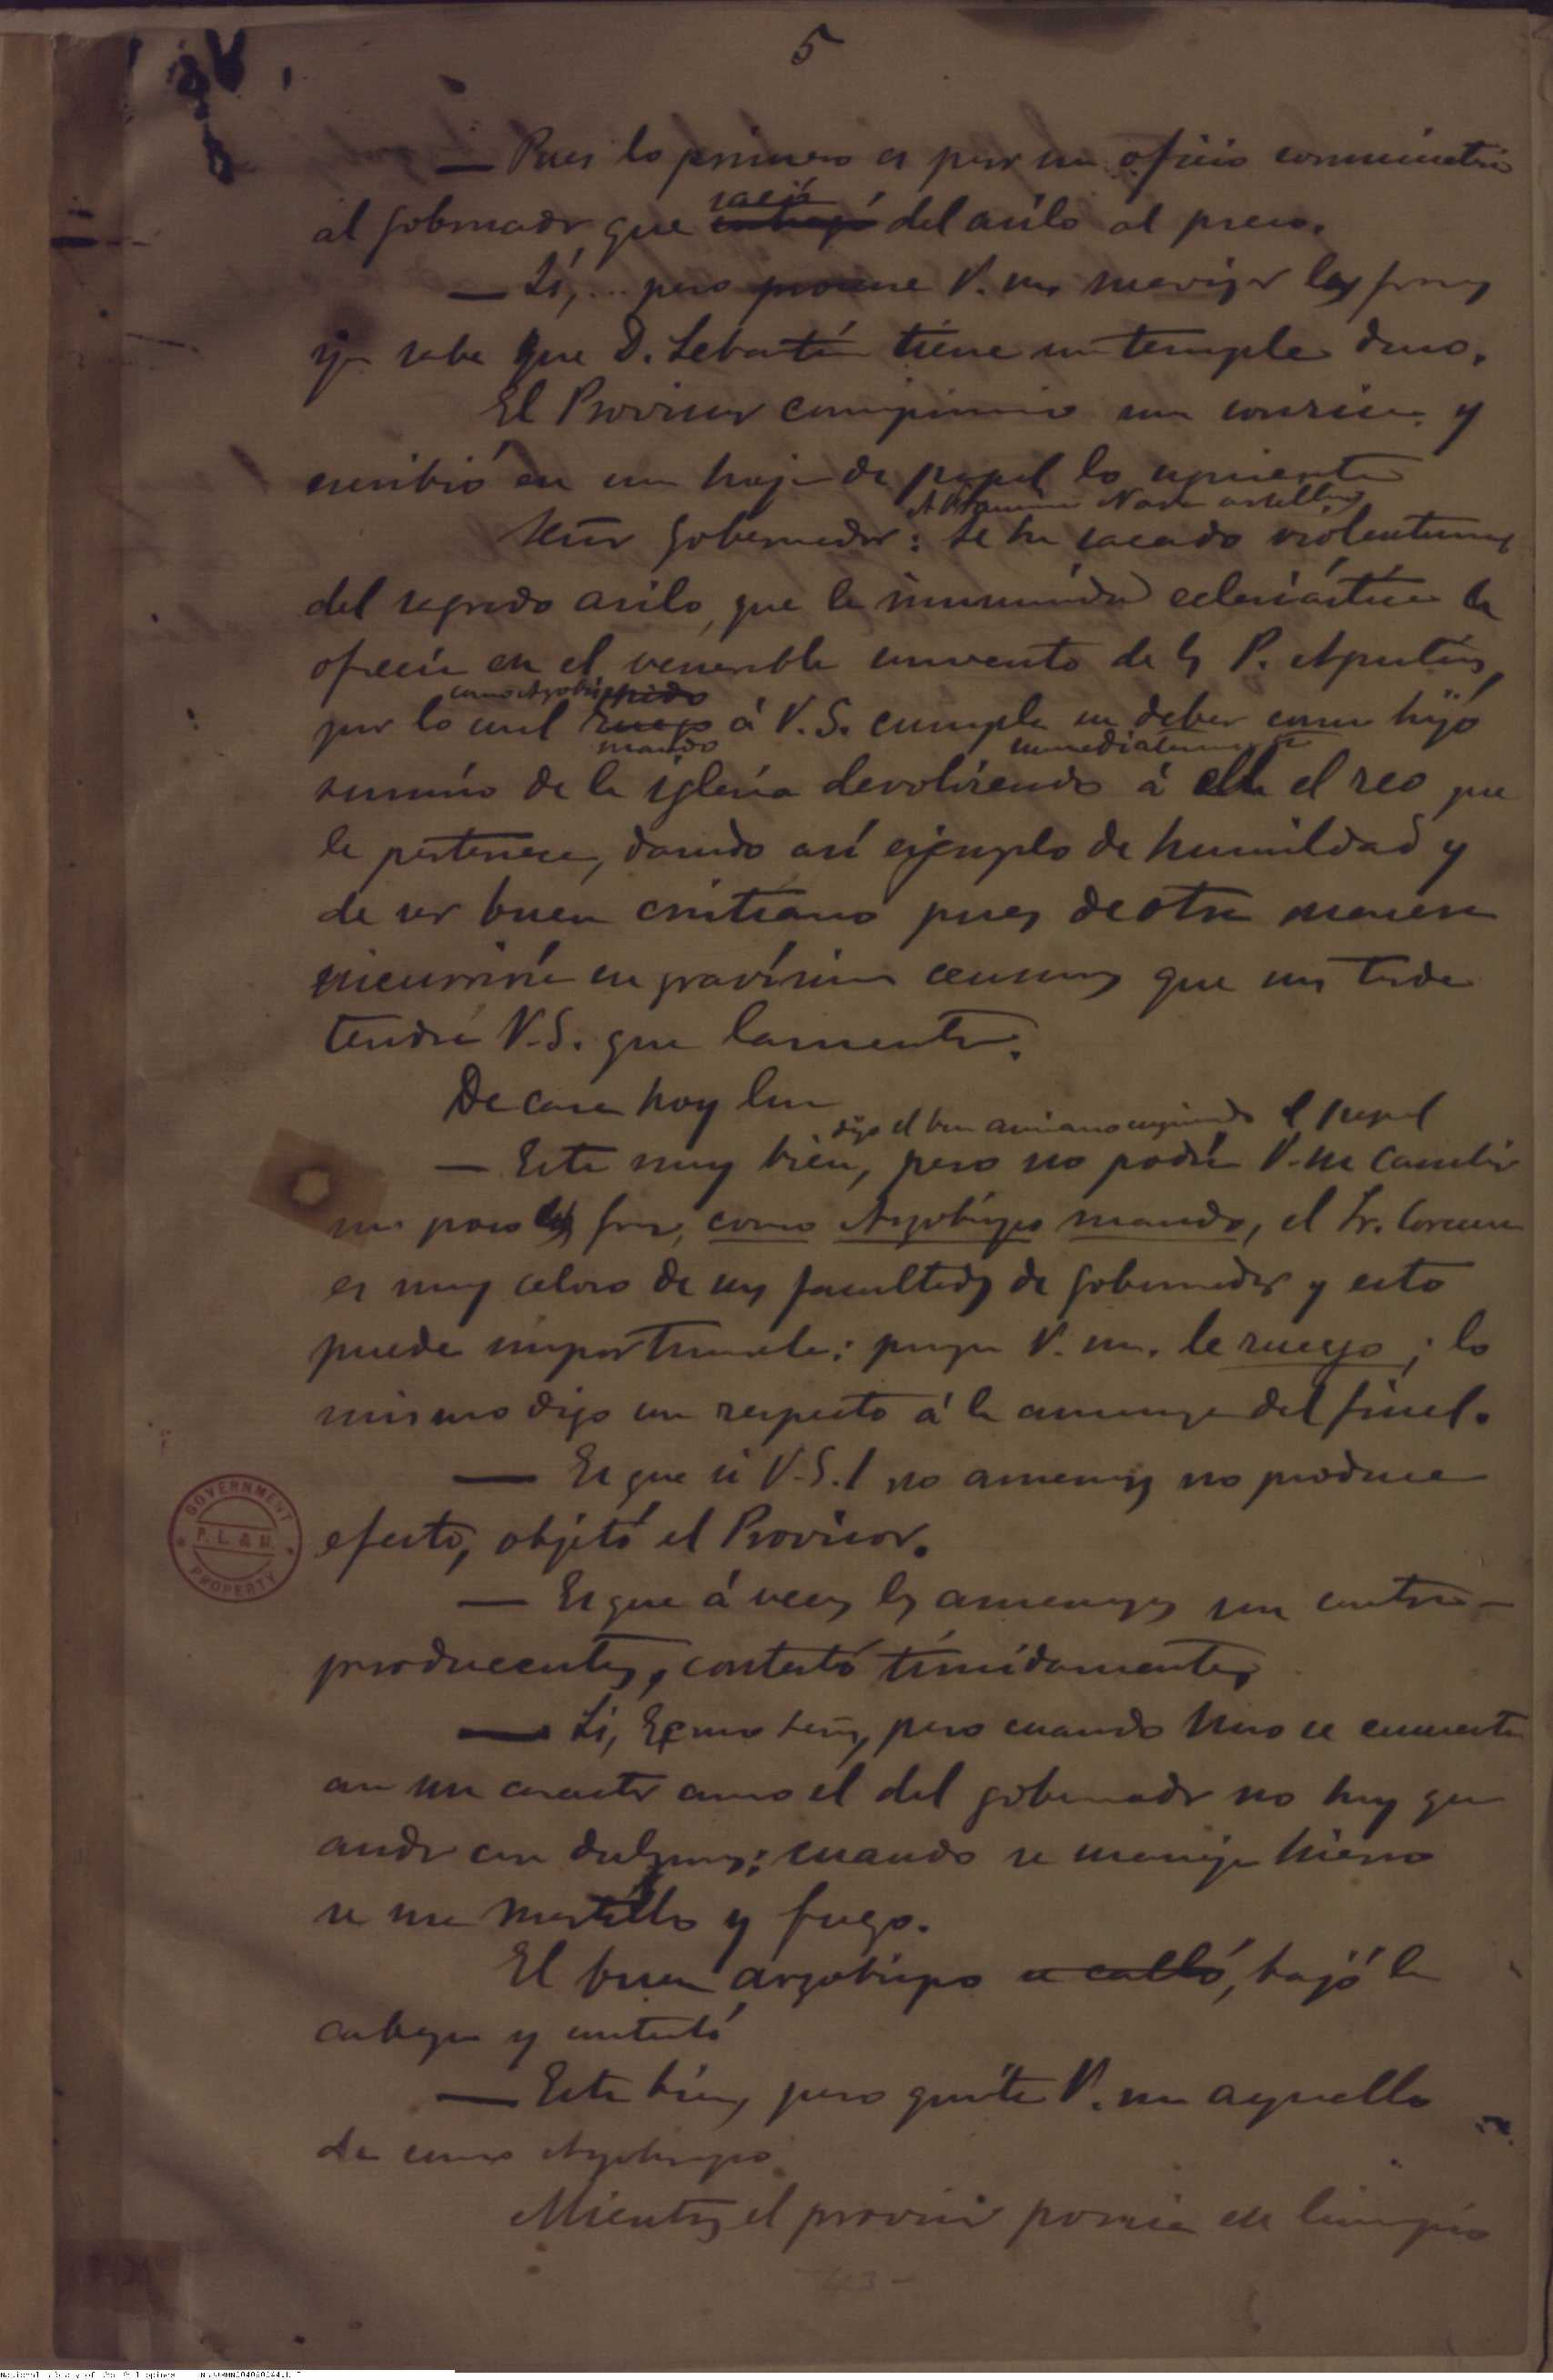 5
— Pues lo primero es por un oficio conminatorio
al gobernador, que saque del asilo al preso.
— Sí,... pero procure V. m. suavizar las frases
ya sabe que D. Sebastián tiene un temple duro.
El Provisor comprimió una sonrisa y
escribió en una hoja de papel lo siguiente
Señor Gobernador: Se ha sacado violentamente
á Francisco Nava artillero
del sagrado asilo, que la inmunidad eclesiástica le
ofrecía en el venerable convento de los P. Agustinos,
como Arzobispo
por lo cual ruego á V.S. cumpla su deber como hijo
mando inmediatamente
sumiso de la iglesia devolviendo á ella el reo que
le pertenece, dando así ejemplo de humildad y
de ser buen cristiano pues de otra manera
incurriría en gravísimas censuras que más tarde
tendrá V.S. que lamentar.
De casa hoy lun
dijo el buen anciano cogiendo el papel
— Está muy bien, pero no podría V. m. cambiar
un poco las frases, como Arzobispo mando, el Sr. Corcuera
es muy celoso de sus facultades de gobernador y esto
puede importunarle; ponga V. m. le ruego; lo
mismo digo con respecto á la amenaza del final.
— Es que si V.S.I no amenaza no produce
efecto, objetó el Provisor.
— Es que á veces las amenazas son contra-
producentes, contestó tímidamente,
— Sí, Excmo Señor, pero cuando uno se encuentra
con un caracter como el del gobernador no hay que
andar con dulzuras; cuando se maneja hierro
se usa martillo y fuego.
El buen arzobispo se calló, bajó la
cabeza y contestó
— Está bien, pero quite V. m. aquello
de como Arzobispo
Mientras el provisor ponía en limpio
GOVERNMENT
P. L. & M.
PROPERTY